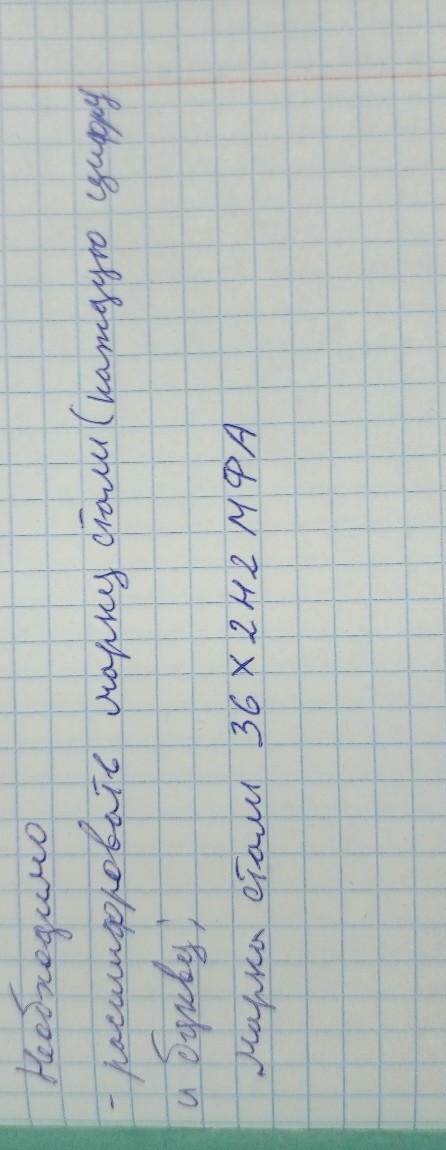 Необходимо
- расшифровать марку стали (каждую цифру
и букву;
Марка стали 36Х2Н2МФА